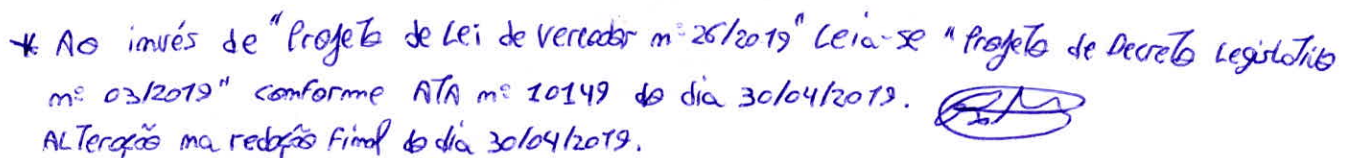 * Ao invés de "Projeto de Lei de Vereador nº 26/2019" Leia-se "Projeto de Decreto Legislativo
nº 03/2019" conforme ATA nº 10149 do dia 30/04/2019.
ALTeração na redação Final do dia 30/04/2019.